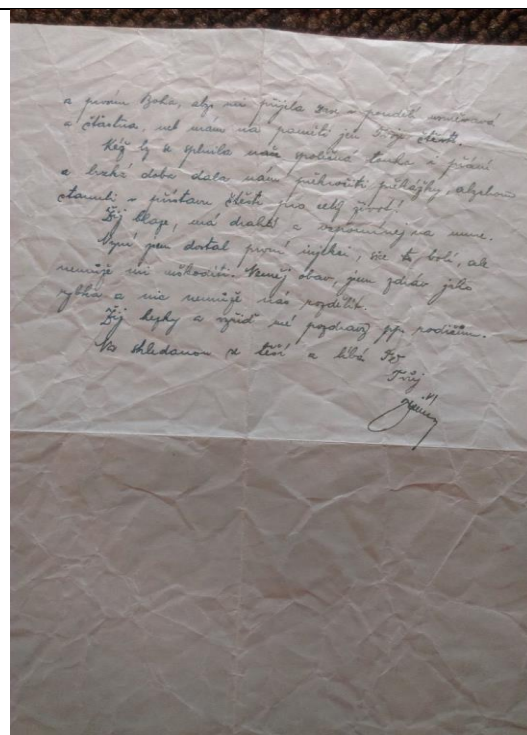 a prosím Boha, aby mi přijela Tvé v pondělí
a šťastna, neb mám na paměti jen Tvoje štěstí.
Kéž by se splnila naše společná touha a přání
a brzká doba dala nám překročiti překážky, abychom
stanuli v přístavu štěstí pro celý život!
Žij blaze, má drahá a vzpomínej na mne.
Nyní jsem dostal první injekci, vše to bolí, ale
nemůže mi uškoditi. Neměj obav, jsem zdráv jako
rybka a nic nemůže nás rozdělit.
Žij hezky a vyřiď mé pozdravy pp. rodičům.
Na shledanou se těší a líbá Tě
Tvůj